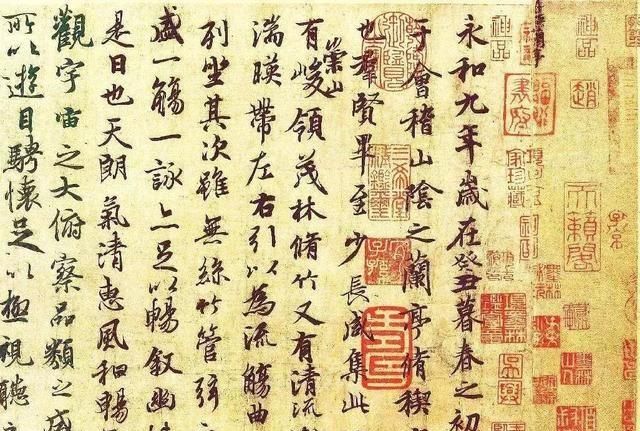 神品
天籟閣
趙
神品
家珍藏
永和九年歲在癸丑暮春之初
于會稽山陰之蘭亭脩稧
也羣賢畢至少長咸集此
有崇山峻領茂林脩竹又有清流
湍暎帶左右引以為流觴曲
列坐其次雖無絲竹管弦
盛一觴一詠亦足以暢敘幽情
是日也天朗氣清惠風和暢
觀宇宙之大俯察品類之盛
所以遊目騁懷足以極視聽